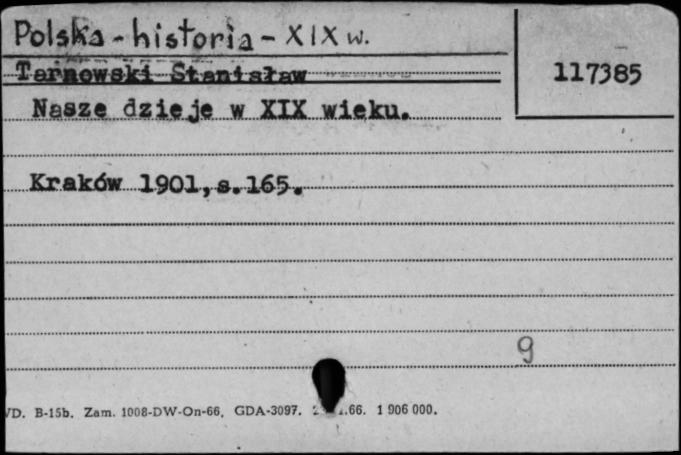 Polska - historia - XIX w.
Tarnowski Stanisław
117385
Nasze dzieje w XIX wieku.
Kraków 1901, s. 165.
9
VD. B-15b. Zam. 1008-DW-On-66. GDA-3097. .66. 1 906 000.